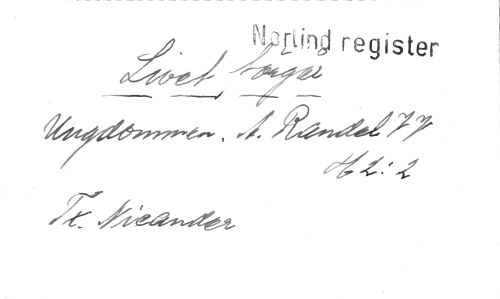 Norlind register
Livet
Ungdommen. A. Randel VV
H2:2
Tx. Nicander